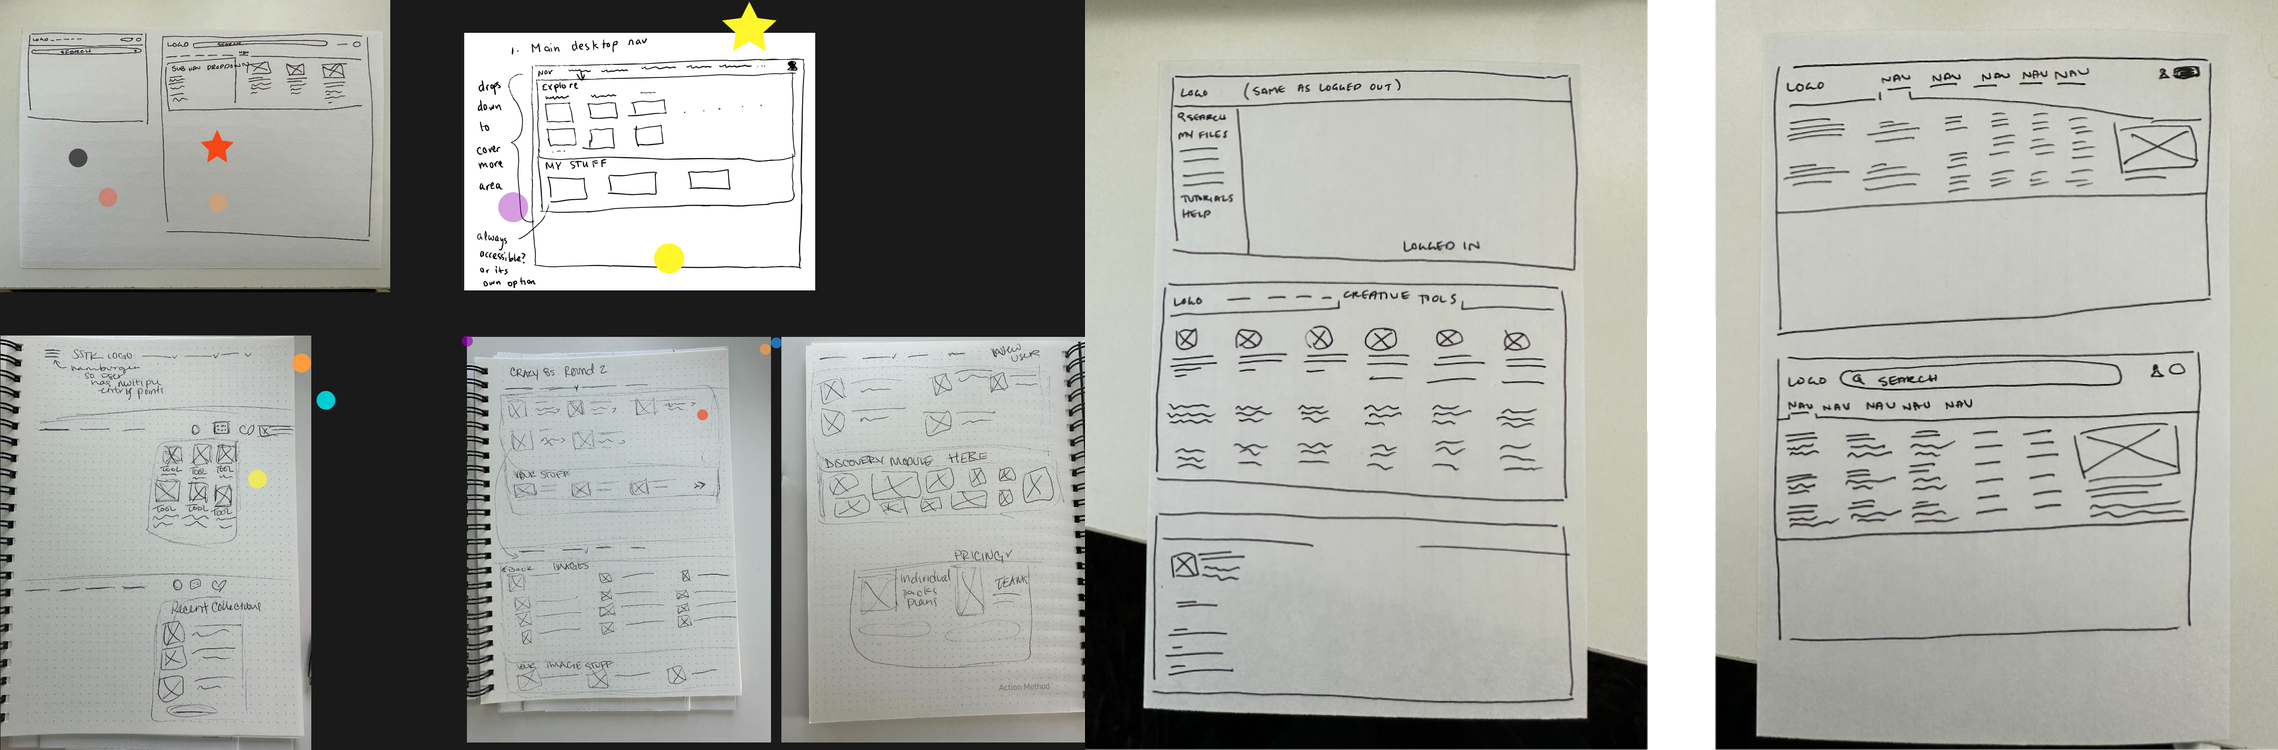 LOGO
SEARCH
LOGO SEARCH
SUB NAV DROPDOWN
1. Main desktop nav
drops
down
to
cover
more
area
NAV
Explore
MY STUFF
always
accessible?
or its
own option
SSTK LOGO
hamburger
so user
has multiple
entry points
TOOL TOOL TOOL
TOOL TOOL TOOL
Recent Collections
CRAZY 8s Round 2
YOUR STUFF
BACK IMAGES
YOUR IMAGE STUFF
NEW
USER
DISCOVERY MODULE HERE
PRICING
individual
packs
plans
TEAM
Action Method
LOGO (SAME AS LOGGED OUT)
SEARCH
MY FILES
TUTORIALS
HELP
LOGGED IN
LOGO CREATIVE TOOLS
LOGO NAV NAV NAV NAV NAV
LOGO SEARCH
NAV NAV NAV NAV NAV